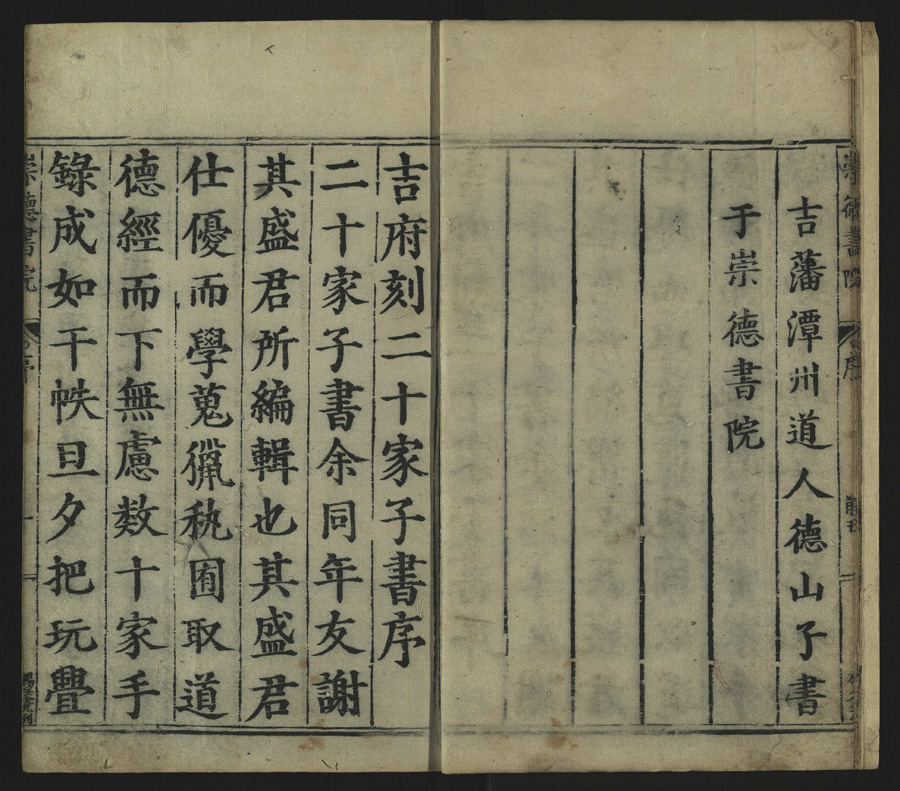 吉藩潭州道人德山子書
于崇德書院
吉府刻二十家子書序
二十家子書余同年友謝
其盛君所編輯也其盛君
仕優而學蒐獵秇囿取道
德經而下無慮数十家手
錄成如干帙旦夕把玩疊
崇德書院
序